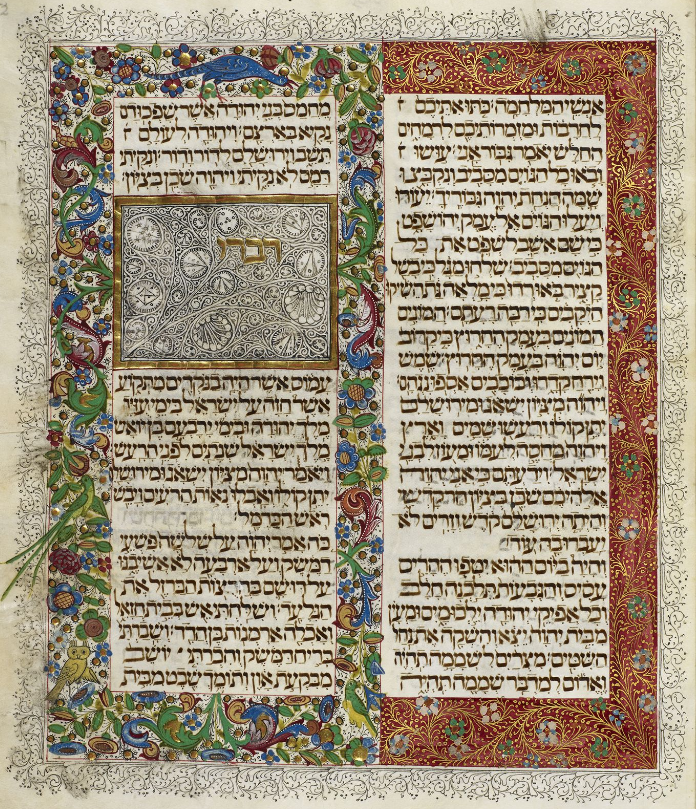 אנשי המלחמה כתו אתיכם
לחרבות ומזמרותיכם לרמחים
החלש יאמר גבור אני עושו
ובאו כל הגוים מסביב ונקבצו
שמה הנחת יהוה גבוריך יעורו
ויעלו הגוים אל עמק יהושפט
כי שם אשב לשפט את כל
הגוים מסביב שלחו מגל כי בשל
קציר באו רדו כי מלאה גת השיקו
היקבים כי רבה רעתם המונים
המונים בעמק החרוץ כי קרוב
יום יהוה בעמק החרוץ שמש
וירח קדרו וכוכבים אספו נגהם
ויהוה מציון ישאג ומירושלם
יתן קולו ורעשו שמים וארץ
ויהוה מחסה לעמו ומעוז לבני
ישראל וידעתם כי אני יהוה
אלהיכם שכן בציון הר קדשי
והיתה ירושלם קדש וזרים לא
יעברו בה עוד
והיה ביום ההוא יטפו ההרים
עסיס והגבעות תלכנה חלב
וכל אפיקי יהודה ילכו מים ומעין
מבית יהוה יצא והשקה את נחל
השטים מצרים לשממה תהיה
ואדום למדבר שממה תהיה
מחמס בני יהודה אשר שפכו דם
נקיא בארצם ויהודה לעולם
תשב וירושלם לדור ודור ונקיתי
דמם לא נקיתי ויהוה שכן בציון
דברי
עמוס אשר היה בנקדים מתקוע
אשר חזה על ישראל בימי עזיה
מלך יהודה ובימי ירבעם בן יואש
מלך ישראל שנתים לפני הרעש
ויאמר יהוה מציון ישאג ומירושלם
יתן קולו ואבלו נאות הרעים ויבש
ראש הכרמל
כה אמר יהוה על שלשה פשעי
דמשק ועל ארבעה לא אשיבנו
על דושם בחרצות הברזל את
הגלעד ושלחתי אש בבית חזאל
ואכלה ארמנות בן הדד ושברתי
בריח דמשק והכרתי יושב
מבקעת און ותומך שבט מבית